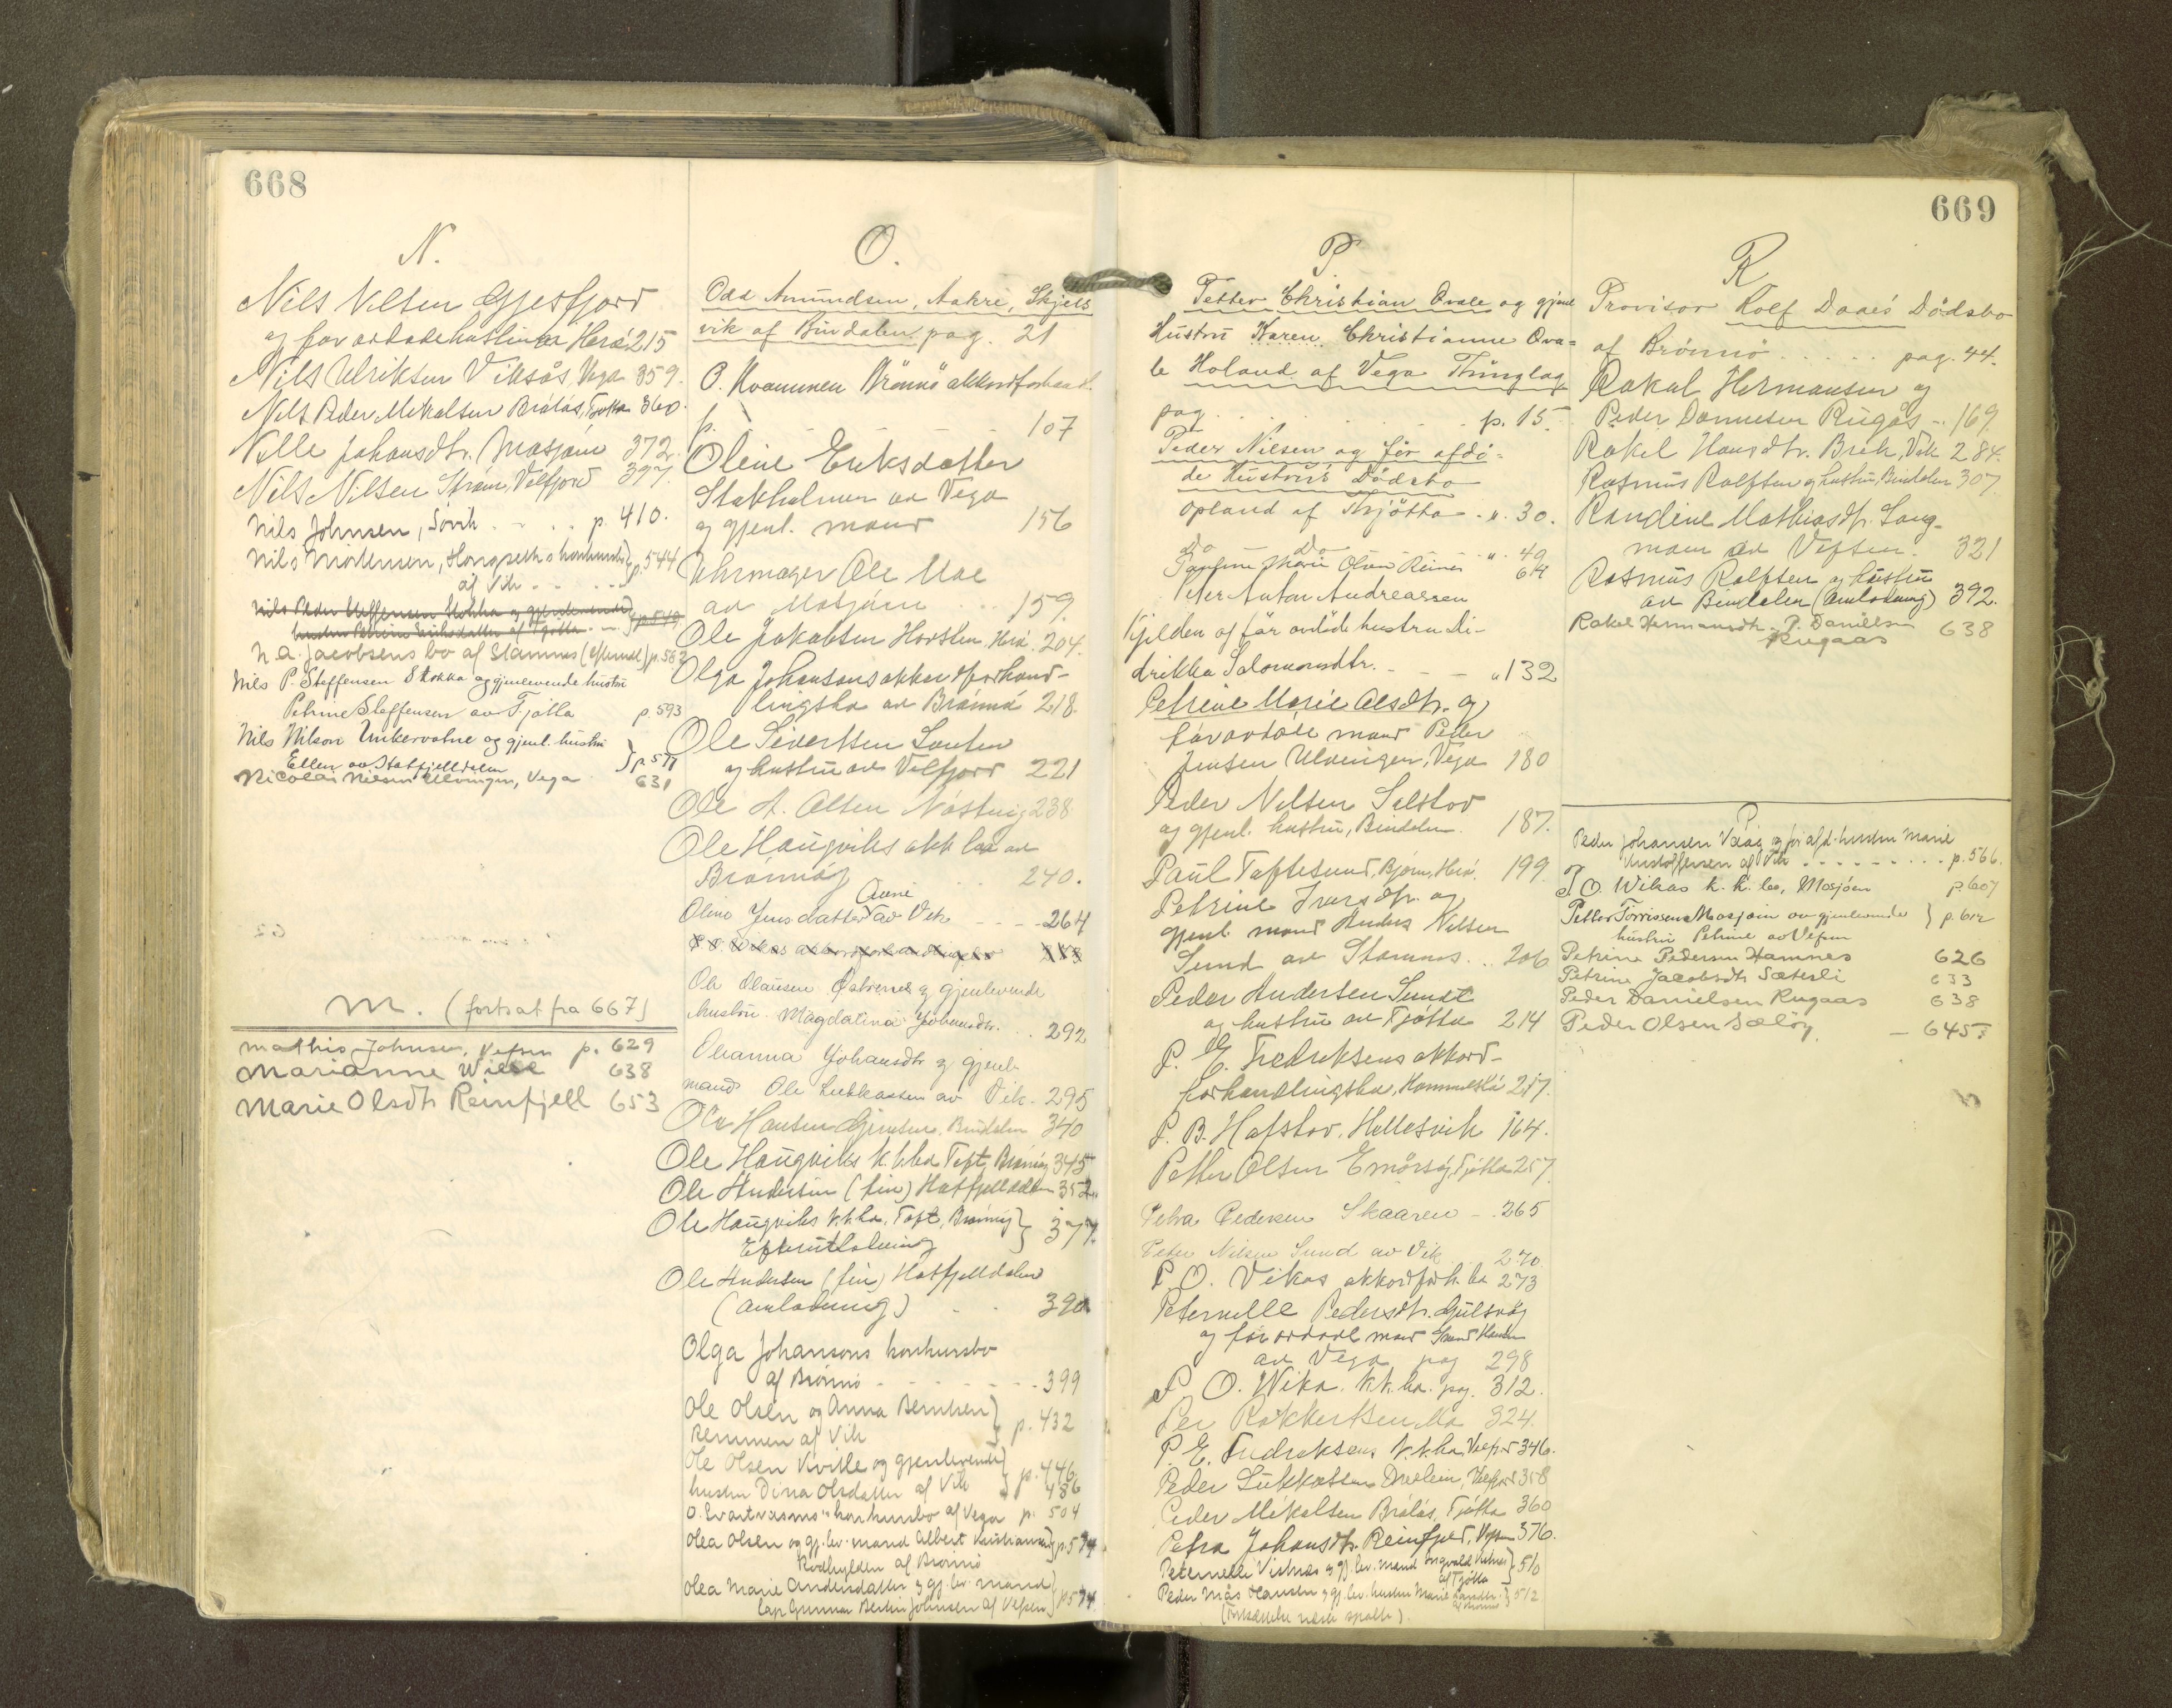 668
N.
Nils Nilsen Gjesfjord
og før avdøde hustru Herø 215
Nils Ulriksen Viksås, Vega 359.
Nils Peder Mikalsen Brålås, Tjøtta 360.
Nille Johansdtr. Mosjøen 372.
Nils Nilsen Strøm, Velfjord 397.
Nils Johnsen, Sørvik . - . . p. 410.
Nils Mortensen, konkursbo p. 544
af Vik - - - -
Nils Peder Steffensen Stokka og gjenlevende
hustru Petrine Eriksdatter af Tjøtta
N. A. Jacobsens bo af Stamnes (efterutl.) p. 562
Nils P. Steffensen Stokka og gjenlevende hustru
Petrine Steffensen av Tjøtta p. 593
Nils Nilson Unkervatne og gjenl. hustru
Ellen av Hatfjelldalen p. 577
Nicolai Nilsen Ulvingen, Vega 631
M. (fortsat fra 667)
Mathis Johnsen, Vefsn p. 629
Marianne Wiese 638
Marie Olsdtr Reinfjell 653
O.
Odd Amundsen, Aakre, Skjels
vik af Bindalen pag. 21
O. Kvammen Brønnø akkordforhandl.
p. - - - - 107
Oline Eriksdatter
Stakholmen av Vega
og gjenl. mand 156
Uhrmager Ole Moe
av Mosjøen ... 159.
Ole Jakobsen Horsten, Herø. 204.
Olga Johansons akkordforhand-
lingsbo av Brønnø 218.
Ole Sivertsen Sausen
og hustru av Velfjord 221
Ole A. Olsen Nøstvig 238
Ole Haugviks akk bo av
Brønnøy .. 240.
Oline Jensdatter Aune av Vik - - - 264
P. O. Wikas akkordforhandlingsbo
Ole Olausen Østernes og gjenlevende
hustru Magdalina Johansdtr. . . 292
Oleanna Johansdtr og gjenl.
mand Ole Lukkassen av Vik. 295
Ole Hansen Gimsen, Bindalen 340
Ole Haugviks k.k.bo Toft, Brønnøy 345
Ole Andersen (fin) Hatfjelldalen 352.
Ole Haugviks k.k.bo, Toft, Brønnøy 377.
Efterutlodning
Ole Andersen (fin) Hatfjelldalen
(omlodning) - - 390.
Olga Johansons konkursbo
af Brønnø - - - - - - - 399
Ole Olsen og Anna Berntsen
Remmen af Vik p. 432
Ole Olsen Kville og gjenlevende
hustru Dina Olsdatter af Vik p. 446, 486
O. Evartvasmo's konkursbo af Vega p. 504
Olea Olsen og gj. lev. mand Albert Kristiansen p. 574
Rødhylden af Brønnø
Olea Marie Andersdatter og gj. lev. mand
Gunnar Bertin Johnsen af Vefsen p. 574
669
P
Petter Christian Ovale og gjenl
Hustru Karen Christianne Ova=
le Holand af Vega Thinglag
pag . . . . . . . p. 15.
Peder Nilsen og før afdø=
de Hustrus Dødsbo
Opland af Thjøtta - " . 30.
Do Do - " . 49
Pauline Marie Olsen Reines 614
Peter Anton Andreassen
Kjelden og før avdøde hustru Di-
drikka Salomonsdtr. - - - " 132
Petrine Marie Olsdtr. og
før avdøde mand Peder
Jensen Ulvingen, Vega 180
Peder Nilsen Selstov
og gjenl. hustru, Bindalen. 187.
Paul Toftesund, Bjørn, Herø. 199.
Petrine Iversdtr. og
gjenl. mand Anders Nilsen
Sund av Stamnes. . . 206
Peder Andersen Sundt
og hustru av Tjøtta 214
P. E. Fredriksens akkord-
forhandlingsbo, Hommelstø 217.
P. B. Hafstov, Hellesvik 164.
Petter Olsen Emårsøy, Tjøtta 257.
Petra Pedersen Skaaren - . 265
Peter Nilsen Sund av Vik 270
P. O. Vikas akkordforh. bo 273
Peternelle Pedersdtr. Gulsvåg
og før avdøde mand
av Vega pag 298
P. O. Wika. k.k.bo. pag. 312.
Per 324.
P. E. Fredriksens k.k.bo, Velfjord 346.
Peder Lukkassen Velfjord 358
Peder Mikalsen Brålås, Tjøtta 360
Petra Johansdtr. Reinfjeld, Vefsen 376.
Peternelle Vistnes og gj. lev. mand Ingvald Vistnes 510
af Tjøtta
Peder Mås Hansen og gj. lev. hustru Marie 512
af Brønnø
(Fortsættelse næste spalte).
R
Provisor Rolf Daaes Dødsbo
af Brønnø . . . . . pag. 44.
Rakel Hermansen og
Peder Danielsen Rugås . . 169.
Rakel Hansdtr. Brek, Vik 284.
Rasmus Rolfsen og hustru, Bindalen 307
Randine Mathiasdtr. Lang-
moen av Vefsen. 321
Rasmus Rolfsen og hustru
av Bindalen (omlodning) 392.
Rakel Hermansdtr. P. Danielsen 638
Rugaas
P
Peder Johansen Vaag og før afd. hustru Marie
Kristoffersen af Vik - - - - - - - - - p. 566.
P. O. Wikas k. k. bo, Mosjøen p. 607
Petter Torrissen Mosjøen av gjenlevende p. 612
hustru Petrine av Vefsen
Petrine Pedersen Hamnes 626
Petrine Jacobsdtr Sæterli 633
Peder Danielsen Rugaas 638
Peder Olsen Sæløy - 645